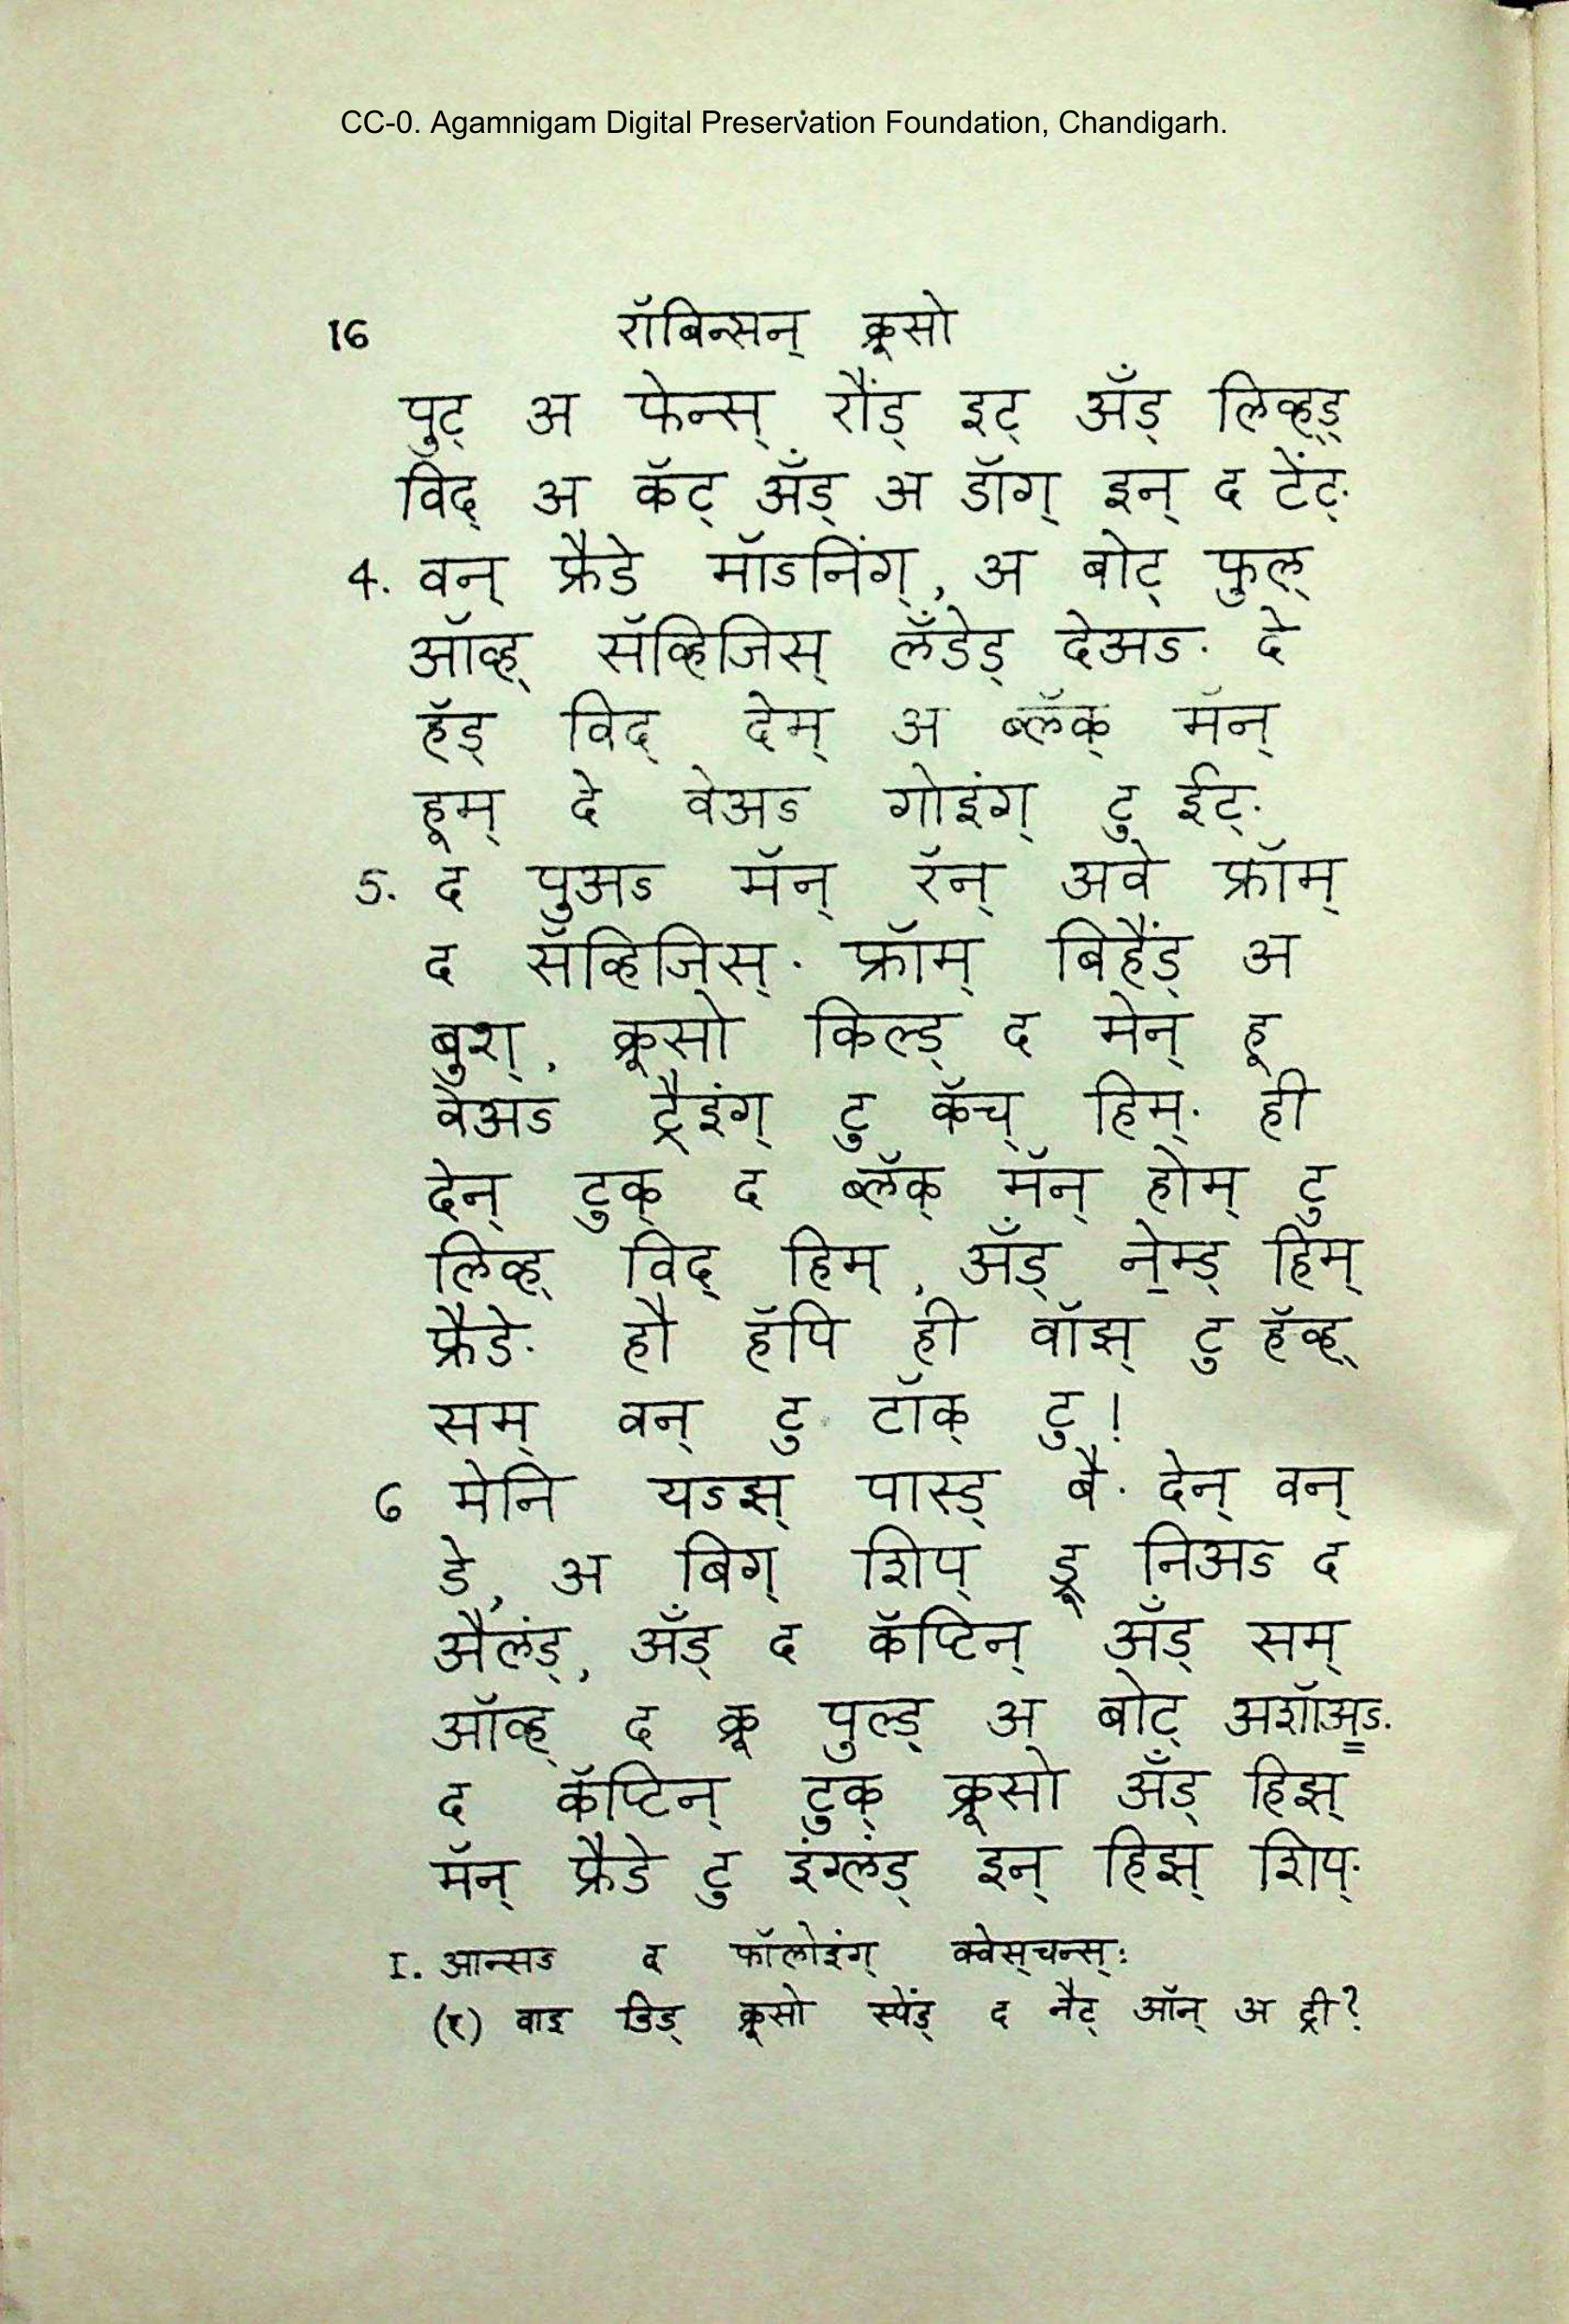 CC-0. Agamnigam Digital Preservation Foundation, Chandigarh.
16 रॉबिन्सन् क्रूसो
पुट् अ फेन्स् रौंड् इट् अँड् लिव्ह्ड्
विद् अ कॅट् अँड् अ डॉग् इन् द टेंट्.
4. वन् फ्रैडे मॉऽनिंग्, अ बोट् फुल्
ऑव्ह् सॅव्हिजिस् लँडेड् देअऽ. दे
हॅड् विद् देम् अ ब्लॅक् मॅन्
हूम् दे वेअऽ गोइंग् टु ईट्.
5. द पुअऽ मॅन् रॅन् अवे फ्रॉम्
द सॅव्हिजिस्. फ्रॉम् बिहैंड् अ
बुश्, क्रूसो किल्ड् द मेन् हू
वेअऽ ट्रैइंग् टु कॅच् हिम्. ही
देन् टुक् द ब्लॅक् मॅन् होम् टु
लिव्ह् विद् हिम्, अँड् ने॒म्ड् हिम्
फ्रैडे. हौ हॅपि ही वॉझ् टु हॅव्ह्
सम् वन् टु टॉक् टु!
6 मेनि यऽझ् पास्ड् बै. देन् वन्
डे, अ बिग् शिप् ड्रू निअऽ द
ऐलंड्, अँड् द कॅप्टिन् अँड् सम्
ऑव्ह् द क्रू पुल्ड् अ बोट् अशॉअऽ.
द कॅप्टिन् टुक् क्रूसो अँड् हिझ्
मॅन् फ्रैडे टु इंग्लंड् इन् हिझ् शिप्.
I. आन्सऽ द फॉलोइंग् क्वेस्चन्स्:
(१) वाइ डिड् क्रूसो स्पेंड् द नैट् ऑन् अ ट्री?